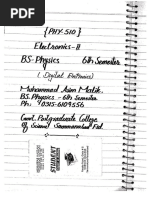 {PHY-510}
Electronics-II
BS-Physics 6th Semester
(Digital Electronics)
Muhammad Asim Malik
BS. Physics - 6th Semester
Ph: 0315-6109556
Govt. Postgraduate College
Of Science Sammanabad Fsd.
STUDENT